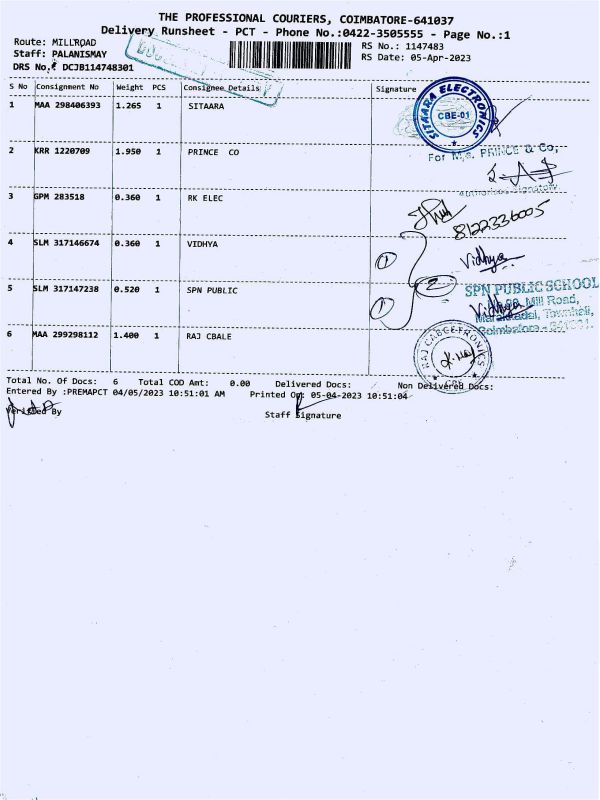 THE PROFESSIONAL COURIERS, COIMBATORE-641037
Delivery Runsheet - PCT - Phone No.:0422-3505555 - Page No.:1
Route: MILLROAD
RS No.: 1147483
Staff: PALANISMAY
RS Date: 05-Apr-2023
DRS No. DCJB114748301
S No Consignment No Weight PCS Consignee Details Signature
1 MAA 298406393 1.265 1 SITAARA
SITAARA ELECTRONICS
CBE-01
2 KRR 1220709 1.950 1 PRINCE CO
For M/s. PRINCE & Co,
Authorised Signatory
3 GPM 283518 0.360 1 RK ELEC
8122336005
4 SLM 317146674 0.360 1 VIDHYA
Vidhya
1
2
5 SLM 317147238 0.520 1 SPN PUBLIC
SPN PUBLIC SCHOOL
Vidhya
Mill Road,
Townhall,
Coimbatore - 641001.
1
6 MAA 299298112 1.400 1 RAJ CBALE
RAJ CABLETRONICS
CBE
Total No. Of Docs: 6 Total COD Amt: 0.00 Delivered Docs: Non Delivered Docs:
Entered By :PREMAPCT 04/05/2023 10:51:01 AM Printed On: 05-04-2023 10:51:04
Verified By
Staff Signature